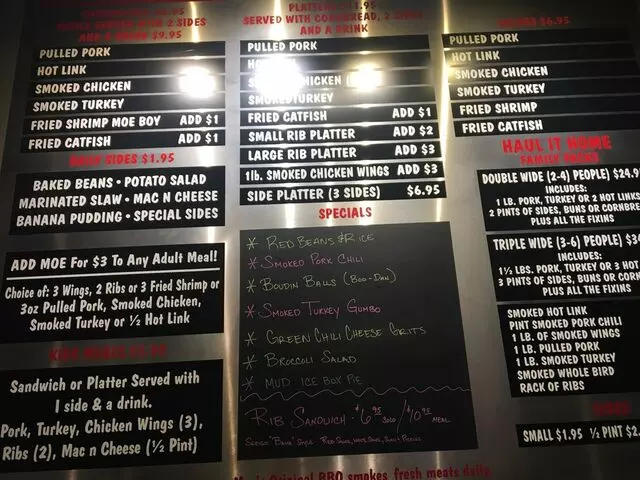 SERVED WITH 2 SIDES
AND A DRINK $9.95
PULLED PORK
HOT LINK
SMOKED CHICKEN
SMOKED TURKEY
FRIED SHRIMP MOE BOY ADD $1
FRIED CATFISH ADD $1
SIDES $1.95
BAKED BEANS • POTATO SALAD
MARINATED SLAW • MAC N CHEESE
BANANA PUDDING • SPECIAL SIDES
ADD MOE FOR $3 To Any Adult Meal!
Choice of: 3 Wings, 2 Ribs or 3 Fried Shrimp or
3oz Pulled Pork, Smoked Chicken,
Smoked Turkey or ½ Hot Link
Sandwich or Platter Served with
1 side & a drink.
Pork, Turkey, Chicken Wings (3),
Ribs (2), Mac n Cheese (½ Pint)
SERVED WITH CORNBREAD, 2 SIDES
AND A DRINK
PULLED PORK
CHICKEN
SMOKED TURKEY
FRIED CATFISH ADD $1
SMALL RIB PLATTER ADD $2
LARGE RIB PLATTER ADD $3
1lb. SMOKED CHICKEN WINGS ADD $3
SIDE PLATTER (3 SIDES) $6.95
SPECIALS
* RED BEANS & RICE
* SMOKED PORK CHILI
* BOUDIN BALLS (BOO-DAN)
* SMOKED TURKEY GUMBO
* GREEN CHILI CHEESE GRITS
* BROCCOLI SALAD
* MUD ICE BOX PIE
RIB SANDWICH - $6.95 SOLO / $10.95 MEAL
Original BBQ smokes fresh meats daily
$6.95
PULLED PORK
HOT LINK
SMOKED CHICKEN
SMOKED TURKEY
FRIED SHRIMP
FRIED CATFISH
HAUL IT HOME
FAMILY PACKS
DOUBLE WIDE (2-4) PEOPLE) $24.9
INCLUDES:
1 LB. PORK, TURKEY OR 2 HOT LINKS
2 PINTS OF SIDES, BUNS OR CORNBRE
PLUS ALL THE FIXINS
TRIPLE WIDE (3-6) PEOPLE) $3
INCLUDES:
1½ LBS. PORK, TURKEY OR 3 HOT
3 PINTS OF SIDES, BUNS OR CORN
PLUS ALL THE FIXINS
SMOKED HOT LINK
PINT SMOKED PORK CHILI
1 LB. OF SMOKED WINGS
1 LB. PULLED PORK
1 LB. SMOKED TURKEY
SMOKED WHOLE BIRD
RACK OF RIBS
SMALL $1.95 ½ PINT $2.